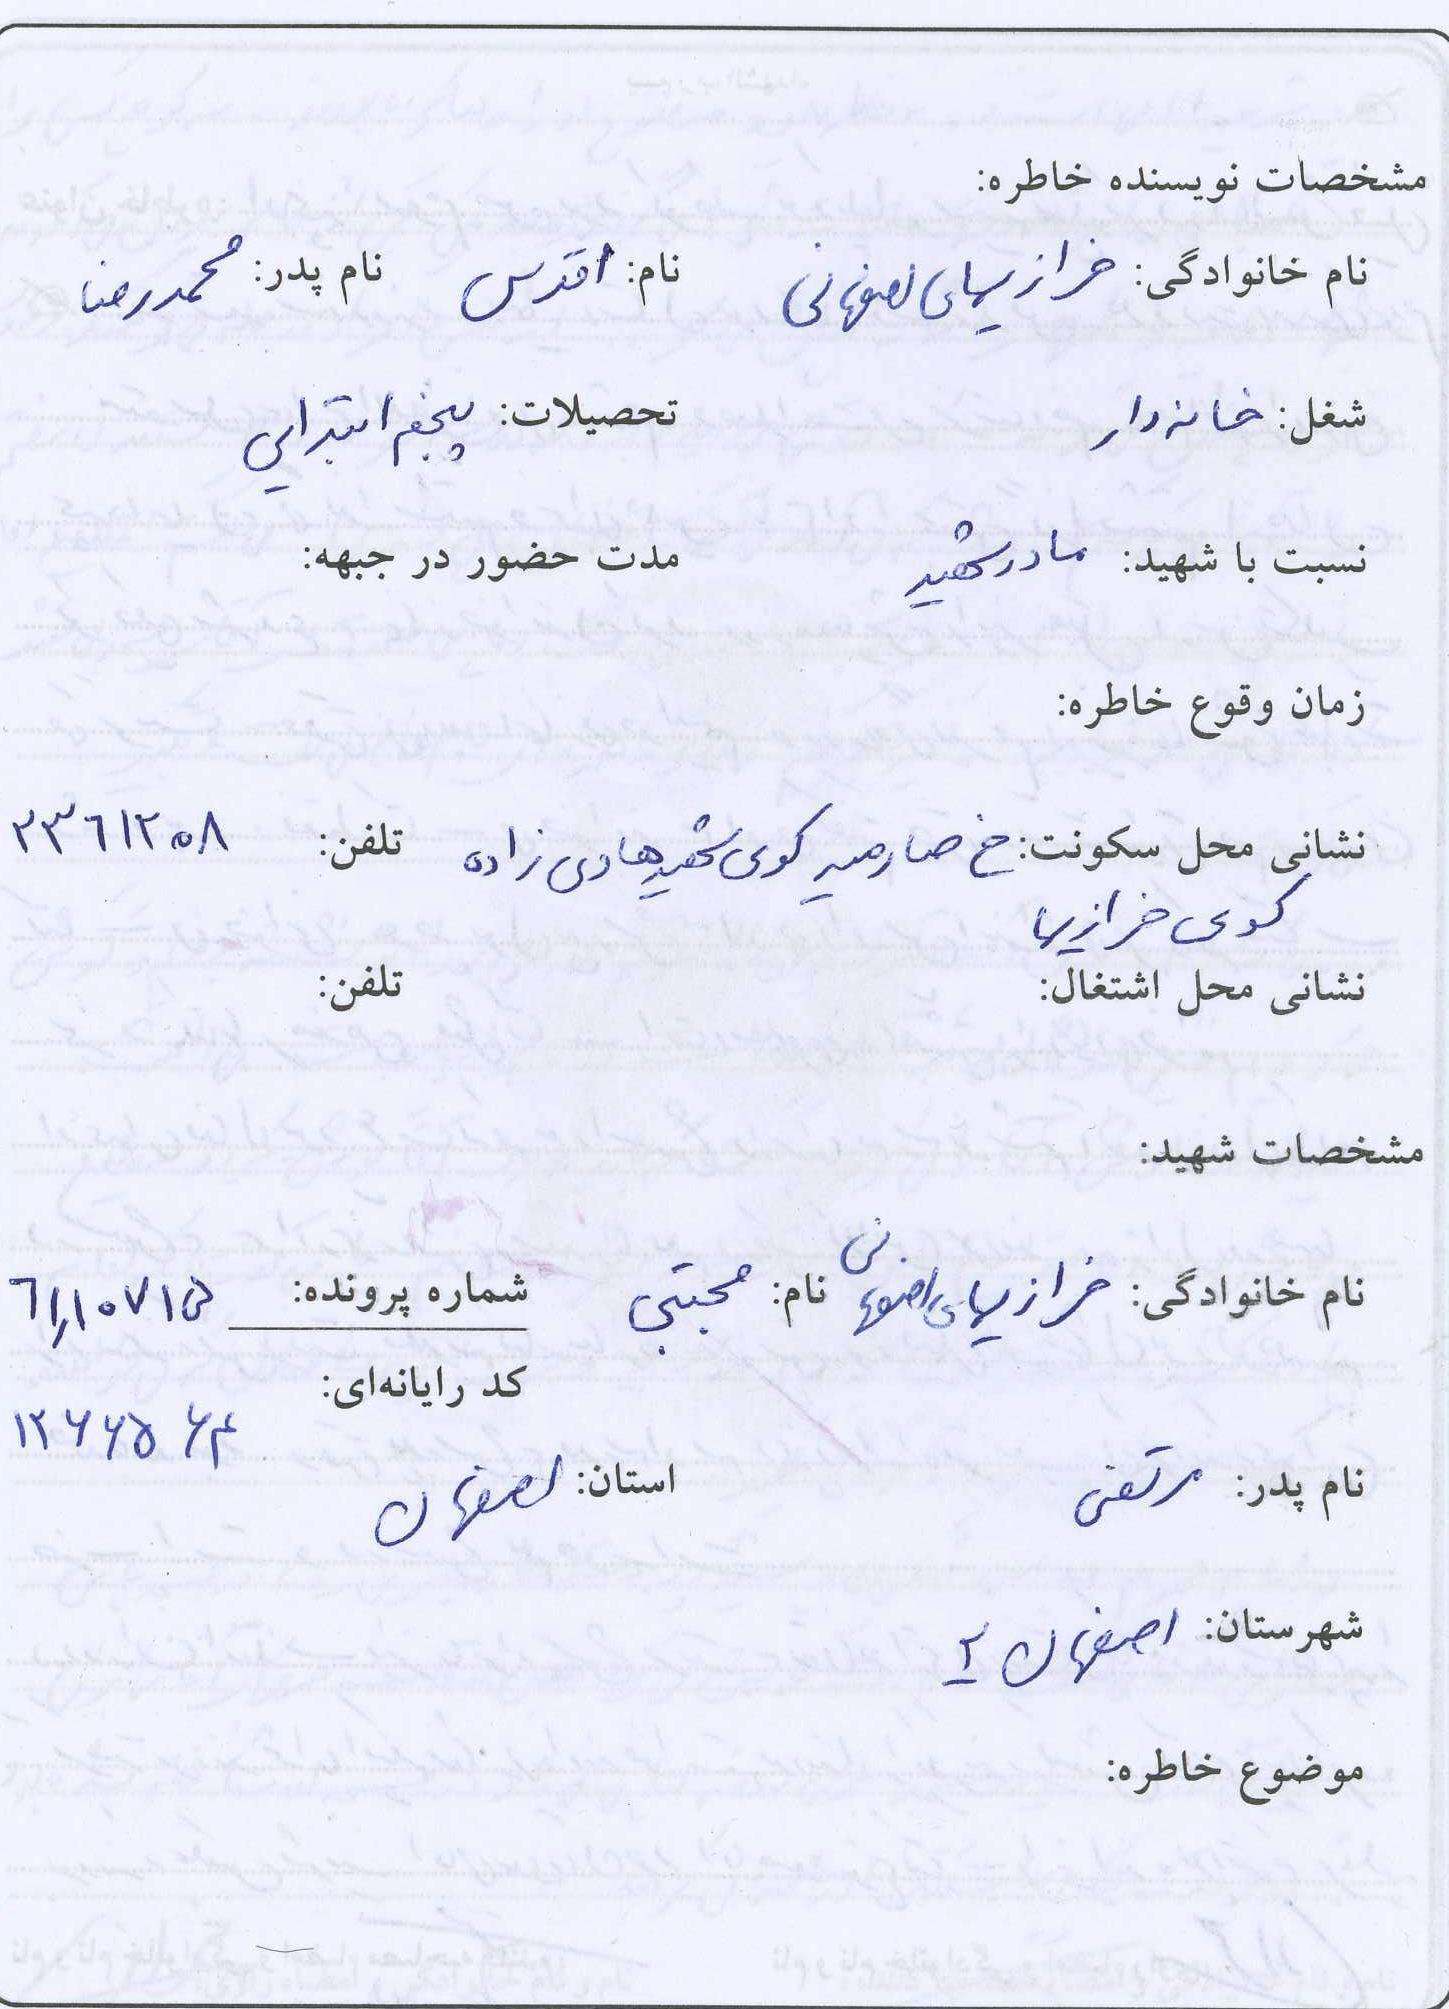 مشخصات نویسنده خاطره:
نام خانوادگی: خرازیهای اصفهانی نام: اقدس نام پدر: محمدرضا
شغل: خانه‌دار تحصیلات: پنجم ابتدایی
نسبت با شهید: مادر شهید مدت حضور در جبهه:
زمان وقوع خاطره:
نشانی محل سکونت: خ صارمیه کوی شهید هادی زاده تلفن: ۲۳۶۱۲۰۸
کوی خرازیها
نشانی محل اشتغال: تلفن:
مشخصات شهید:
نام خانوادگی: خرازیهای اصفهانی نام: مجتبی شماره پرونده:
کد رایانه‌ای:
۱۲۶۶۵۶۴
نام پدر: مرتضی استان: اصفهان
شهرستان: اصفهان ۲
موضوع خاطره: